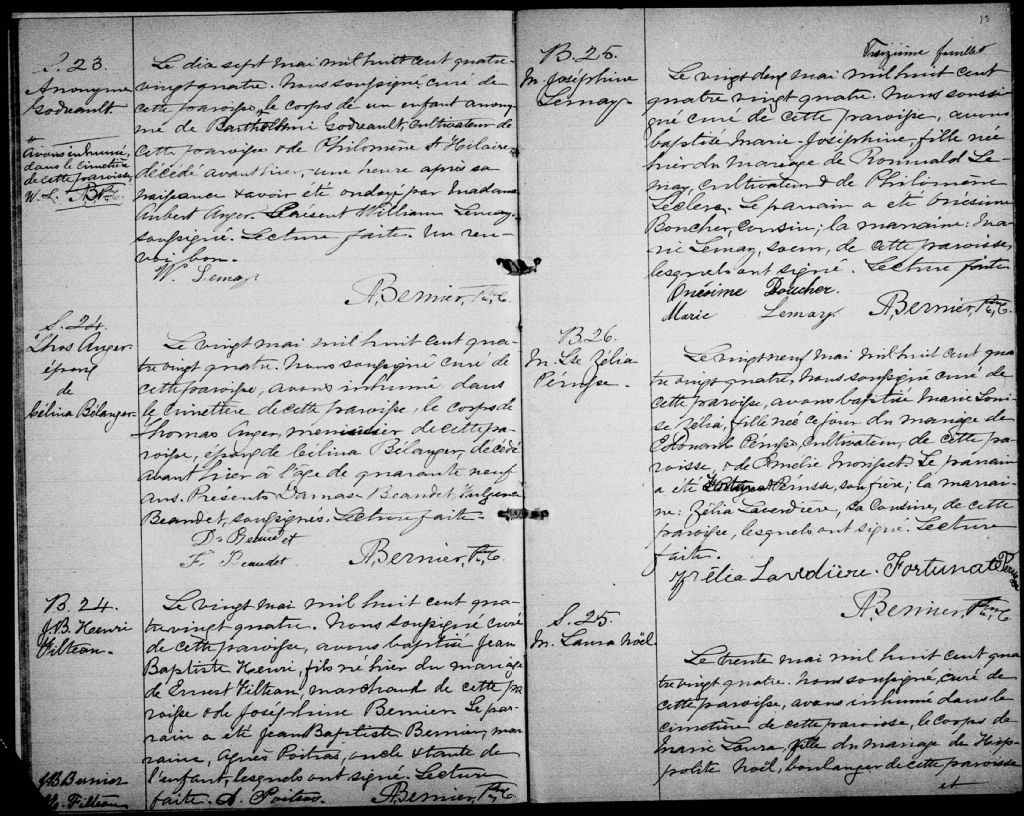 S. 23.
Anonyme
Godreault.
Avons inhumé,
dans le cimetière
de cette paroisse,
W. L. A B Ptre C.
Le dix sept mai mil huit cent quatre-
vingt quatre. Nous soussigné curé de
cette paroisse, le corps de un enfant anony-
me de Barthélemi Godreault, cultivateur de
cette paroisse & de Philomène St Hilaire,
décédé avant hier, une heure après sa
naissance & avoir été ondoyé par madame
Aubert Anger. Présent William Lemay
soussigné. Lecture faite. Un ren-
voi bon.
W. Lemay
A. Bernier, Ptre, C.
S. 24.
Thos Anger
époux
de
Célina Bélanger.
Le vingt mai mil huit cent qua-
tre vingt quatre. Nous soussigné curé de
cette paroisse, avons inhumé dans
le cimetière de cette paroisse, le corps de
Thomas Anger, menuisier de cette pa-
roisse, époux de Célina Bélanger, décédé
avant hier à l'âge de quarante neuf
ans. Présents Damase Beaudet, Fulgence
Beaudet, soussignés. Lecture faite.
Ds Beaudet
F. Beaudet
A. Bernier, Ptre, C.
B. 24.
J. B. Henri
Filteau.
Le vingt mai mil huit cent qua-
tre vingt quatre. Nous soussigné curé
de cette paroisse, avons baptisé Jean
Baptiste Henri, fils né hier du mariage
de Ernest Filteau, marchand de cette pa-
roisse & de Joséphine Bernier. Le par-
rain a été Jean Baptiste Bernier, mar-
raine, Agnès Poitras, oncle & tante de
l'enfant, lesquels ont signé. Lecture
faite. A. Poitras. A. Bernier, Ptre, C.
J B Bernier
Filteau
13
Treizième feuillet
B. 25.
M. Joséphine
Lemay.
Le vingt deux mai mil huit cent
quatre vingt quatre. Nous soussi-
gné curé de cette paroisse, avons
baptisé Marie Joséphine, fille née
hier du mariage de Romuald Le-
may, cultivateur & de Philomène
Leclerc. Le parrain a été Onésime
Boucher, cousin; la marraine: Ma-
rie Lemay, soeur, de cette paroisse,
lesquels ont signé. Lecture faite.
Onésime Boucher.
Marie Lemay. A. Bernier, Ptre, C.
B. 26.
M. Lse Zélia
Pérusse.
Le vingt neuf mai mil huit cent qua-
tre vingt quatre, Nous soussigné curé de
cette paroisse, avons baptisé Marie Loui-
se Zélia, fille née ce jour du mariage de
Edouard Pérusse, cultivateur, de cette pa-
roisse, & de Emélie Morisset. Le parrain
a été Pérusse, son frère; la marrai-
ne: Zélia Laverdière, sa cousine, de cette
paroisse, lesquels ont signé. Lecture
faite.
Zélia Laverdière. Fortunat Pérusse
A. Bernier, Ptre, C.
S. 25.
M. Laura Noël
Le trente mai mil huit cent qua-
tre vingt quatre. Nous soussigné, curé de
cette paroisse, avons inhumé dans le
cimetière de cette paroisse, le corps de
Marie Laura, fille du mariage de Hip-
polite Noël, boulanger de cette paroisse
et